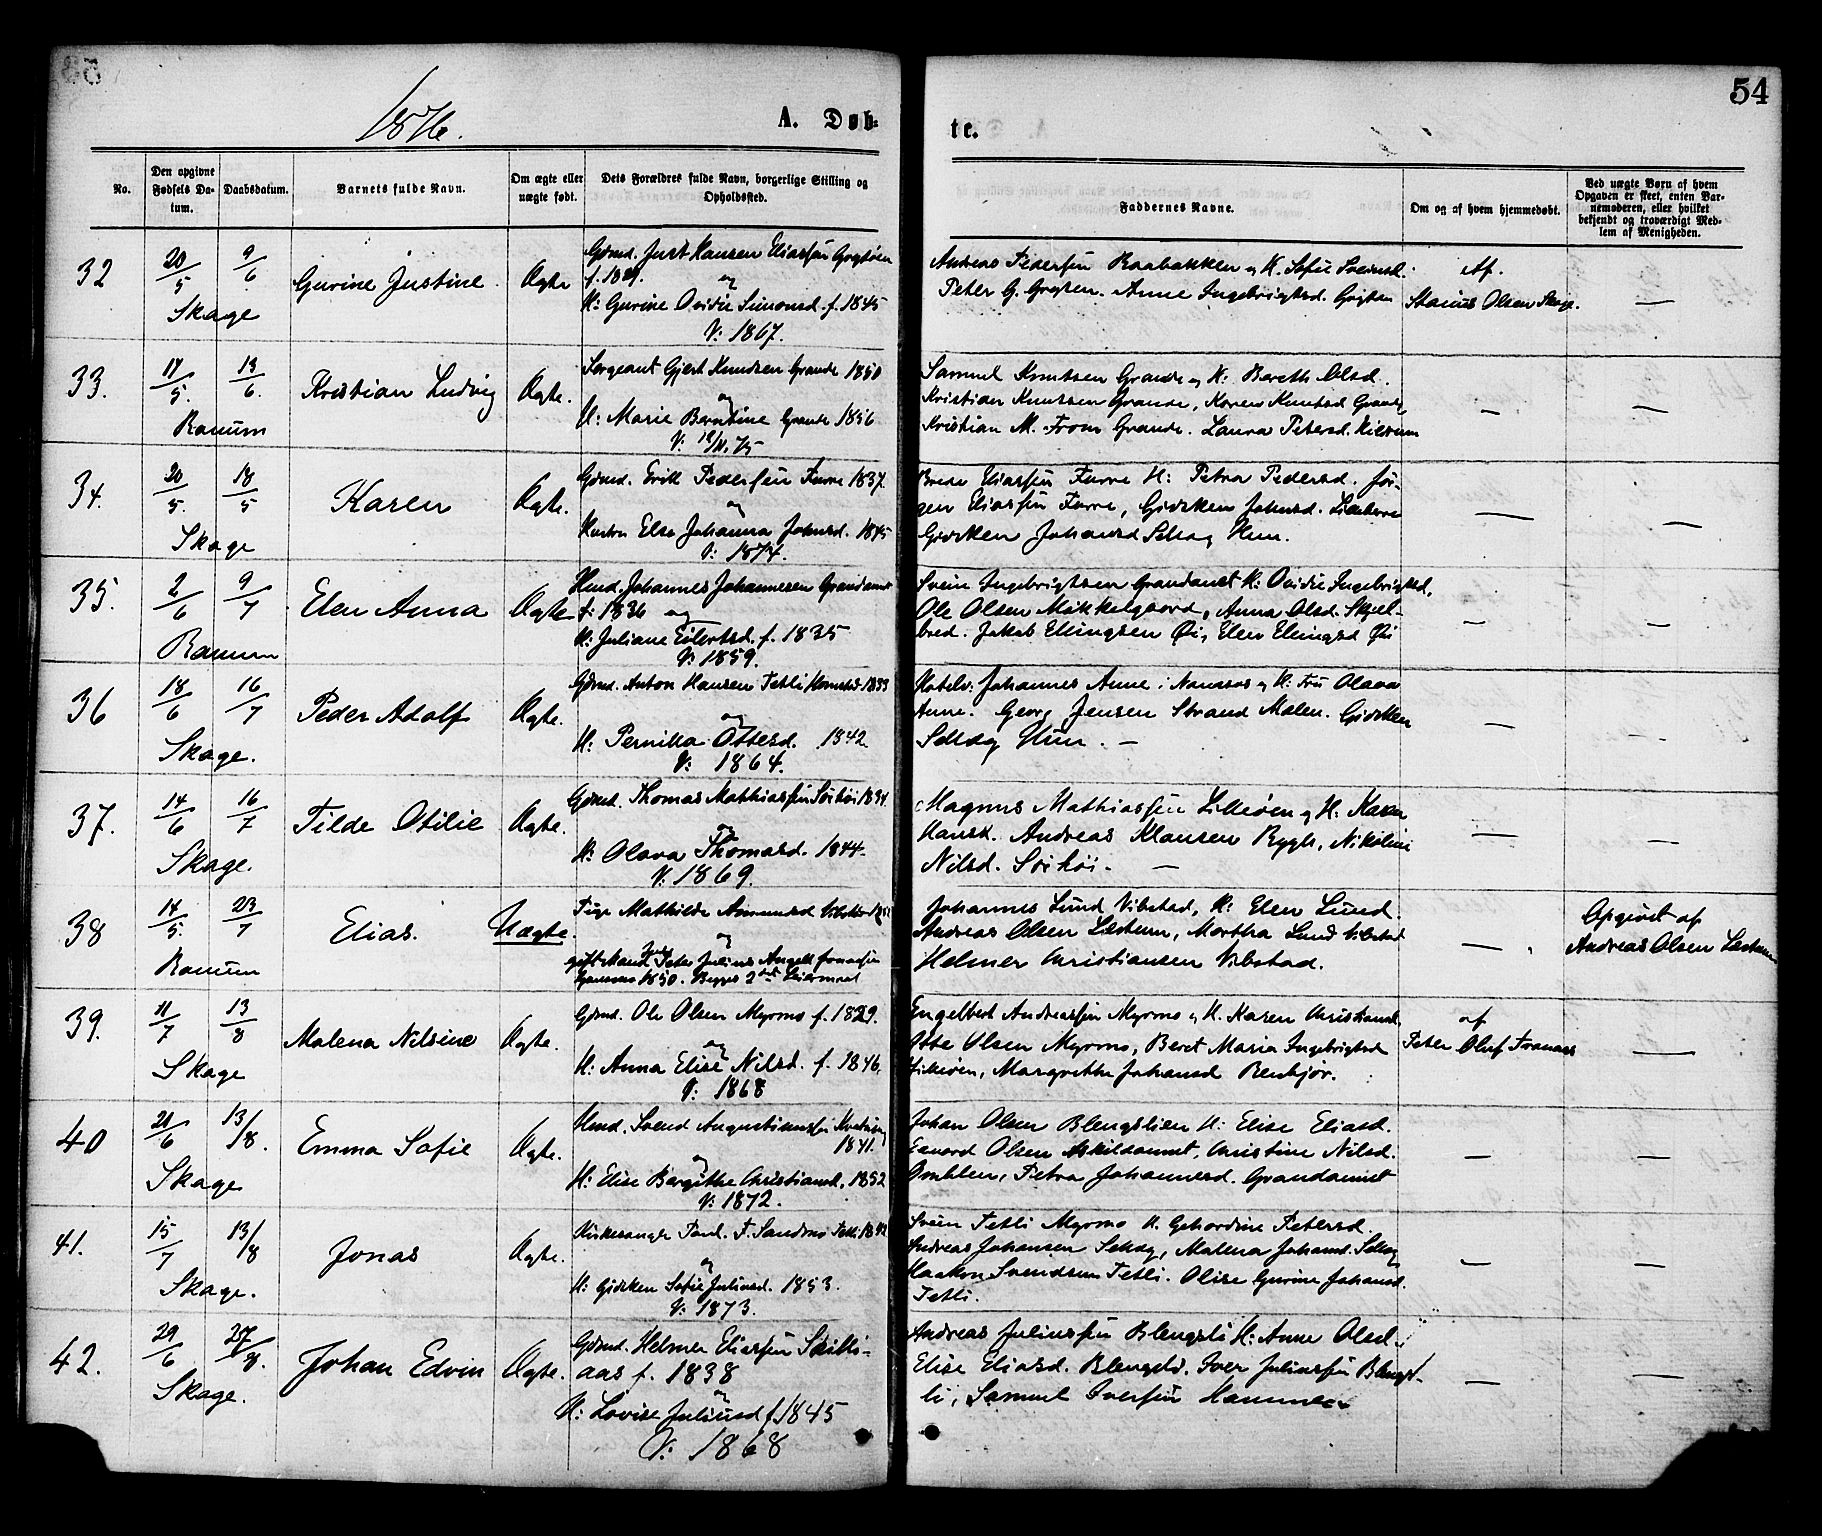 54
1876.
A. Døb-
te.
No.
Den opgivne Fødsels Da-tum.
Daabsdatum.
Barnets fulde Navn.
Om ægte eller uægte født.
Dets Forældres fulde Navn, borgerlige Stilling og Opholdssted.
Faddernes Navne.
Om og af hvem hjemmedøbt.
Ved uægte Børn af hvem Opgaven er skeet, enten Bar-nemoderen, eller hvilket bekjendt og troværdigt Med-lem af Menigheden.
32
20/5
9/6
Skage
Gurine Justine.
Ægte
Gdmd. Just Hansen Eliassøn
og
K: Gurine Ovidie Simonsd. f. 1845
V: 1867.
Andreas Pedersøn Raabakken og K. Sofie Sveinsd.
Peter G. Anne Ingebrigtsd.
Af.
Olsen Skage.
—
33.
17/5.
13/6.
Ranum
Kristian Ludvig
Ægte.
Sergeant Gjert Knudsen Grande 1850
og
K: Marie Berntine Grande 1856
V: 75
Samuel Knutsen Grande og K: Bereth Olsd.
Kristian Knutsen Grande, Karen Knutsd Grande,
Kristian M. From Grande. Laura Petersd.
—
—
34.
20/5.
18/5
Skage
Karen
Ægte.
Gdmd. Erik Pedersøn Furre 1837.
og
Kustru Else Johanna Johnsd. 1845
V: 1874.
Brede Eliassøn Furre K: Petra Pedersd. Jør-
gen Eliassøn Furre, Gidsken Johnsd.
Gidsken Johansd Selvog Hun.
—
—
35.
2/6
9/7
Ranum
Elen Anna
Ægte
Hmd. Johannes Johannesen Grandamet
f. 1836 og
K: Juliane Eilertsd. f. 1835
V: 1859.
Svein Ingebrigtsen Grandamet K: Ovidie Ingebrigtsd,
Ole Olsen Mikkelgaard, Anna Olsd. Skjel-
bred. Jakob Elingsen Øi, Elen Elingsd Øi
—
—
36
18/6
16/7
Skage.
Peder Adolf
Ægte.
Gdmd. Anton Hansen Tetli
og
K: Pernilla Ottesd. 1842
V: 1864.
Johannes Anne i Namsos og K: Fru Olava
Anne. Georg Jensen Strand Malen. Gidsken
Selvog Hun. —
—
—
37.
14/6
16/7
Skage.
Tilde Otilie
Ægte.
Gdmd. Thomas Mathiassøn
og
K: Olava Thomasd. 1844.
V. 1869.
Magnus Mathiassøn Lilleøen og K. Karen
Hansd. Andreas Klausen Rygh, Nikoline
Nilsd. —
—
—
38
14/5.
23/7
Ranum
Elias.
Uægte.
Pige Mathilde Amundsd Vibstad
og
gift Mand Peder Julius
1850. Begges 2det Leiermaal
Johannes Lund Vibstad, K: Elen Lund.
Andreas Olsen Læstum, Martha Lund Vibstad
Helmer Christiansen Vibstad.
—
Opgivet af
Andreas Olsen Læstum
39.
11/7
13/8
Skage
Malena Nilsine
Ægte.
Gdmd. Ole Olsen Myrmo f. 1829.
og
K: Anna Elise Nilsd. f. 1846.
V: 1868
Engelbert Andreassøn Myrmo og K. Karen Christiansd.
Otte Olsen Myrmo, Beret Maria Ingebrigtsd
Lilleøen, Margrethe Johansd
af
Peter Oluf
—
40
21/6
13/8.
Skage
Emma Sofie
Ægte.
Hmd. Svend Augustinussøn
1841.
og
K: Elise Bergithe Christiansd. 1852
V: 1872.
Johan Olsen Blengslien K: Elise Eliasd.
Edvard Olsen Christine Nilsd.
Petra Johannesd. Grandamet
—
—
41.
15/7
13/8
Skage.
Jonas
Ægte.
Kirkesanger Paul F. Sandmo Tetli
og
K: Gidsken Sofie Juliusd. 1853.
V: 1873.
Svein Tetli Myrmo K. Gehardine Petersd.
Andreas Johansen Selvog, Malena Johansd. Selvog
Haakon Svendsen Tetli. Olise Gurine Johansd.
Tetli.
—
—
42.
29/6
27/8.
Skage.
Johan Edvin
Ægte.
Gdmd. Helmer Eliassøn Skilli-
aas f. 1838
og
K: Lovise Juliusd f. 1845
V: 1868
Andreas Juliussøn Blengsli K: Anne Olsd.
Elise Eliasd. Blengsli. Iver Juliussøn Blengs-
li, Samuel Iversøn Hammer
—
—